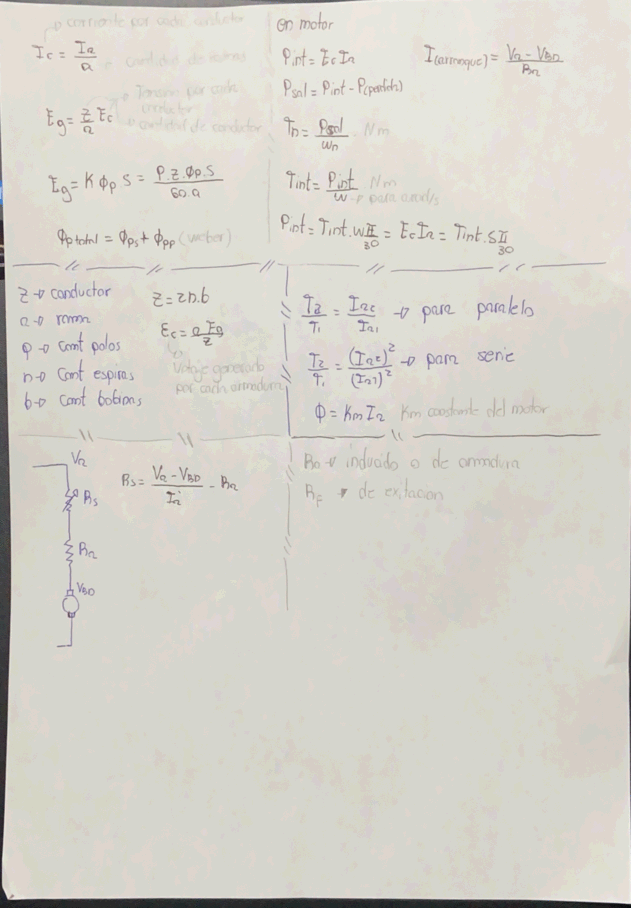 corriente por cada conductor
Ic = Ia/a
cantidad de ramas
Tension por cada
conductor
Eg = Z/a Ec
cantidad de conductor
Eg = K ϕp S = P.Z.ϕp.S/60.a
ϕp total = ϕps + ϕpp (weber)
en motor
Pint = Ec Ia
I(arranque) = Va - VBD/Ra
Psal = Pint - P(perdida)
Tn = Psal/wn Nm
Tint = Pint/w Nm
para a rad/s
Pint = Tint.w π/30 = Ec Ia = Tint.S π/30
Z → conductor
a → rama
φ → Cant polos
n → Cant espiras
b → Cant bobinas
Z = 2n.b
Ec = a Eg/Z
Voltaje generado
por cada armadura
T2/T1 = Ia2/Ia1 → para paralelo
T2/T1 = (Ia2)²/(Ia1)² → para serie
ϕ = Km Ia Km constante del motor
Va
Rs
Ra
VBD
Rs = Va - VBD/Ia - Ra
Ra → induado o de armadura
Rf → de exitacion